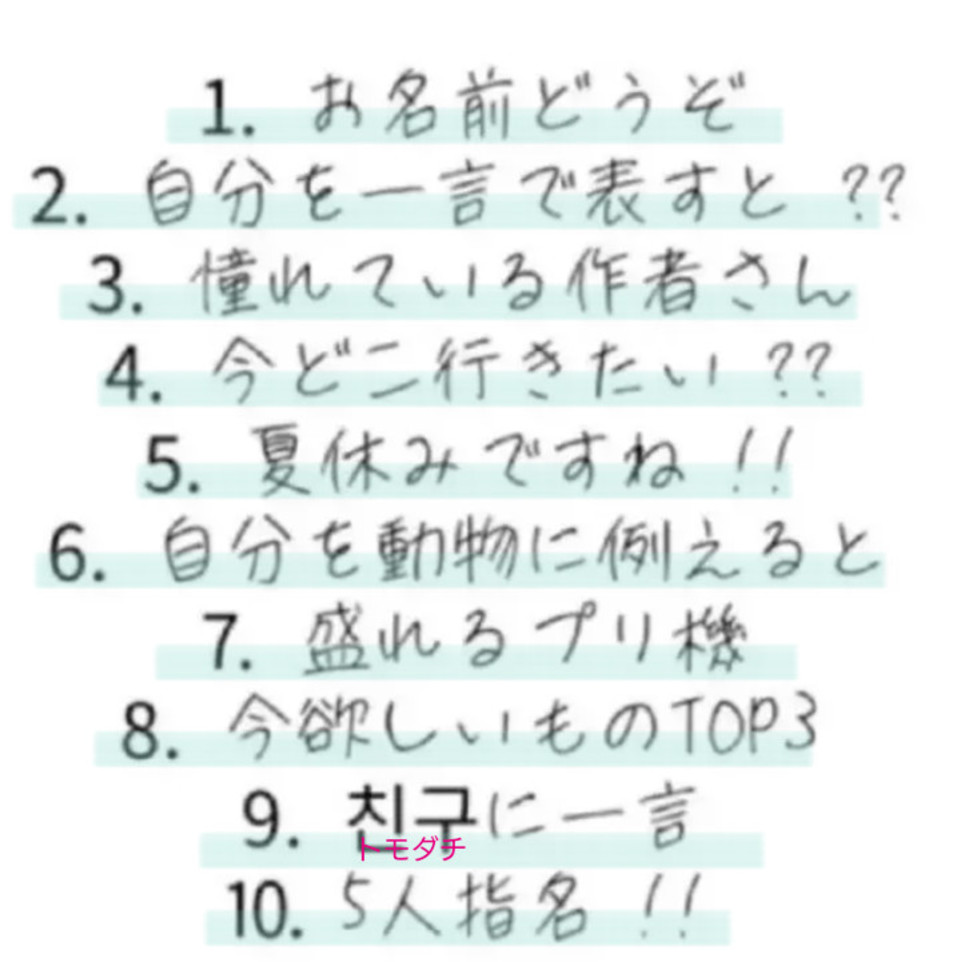 1. お名前どうぞ
2. 自分を一言で表すと ??
3. 憧れている作者さん
4. 今どこ行きたい ??
5. 夏休みですね !!
6. 自分を動物に例えると
7. 盛れるプリ機
8. 今欲しいものTOP3
9. 친구に一言
トモダチ
10. 5人指名 !!